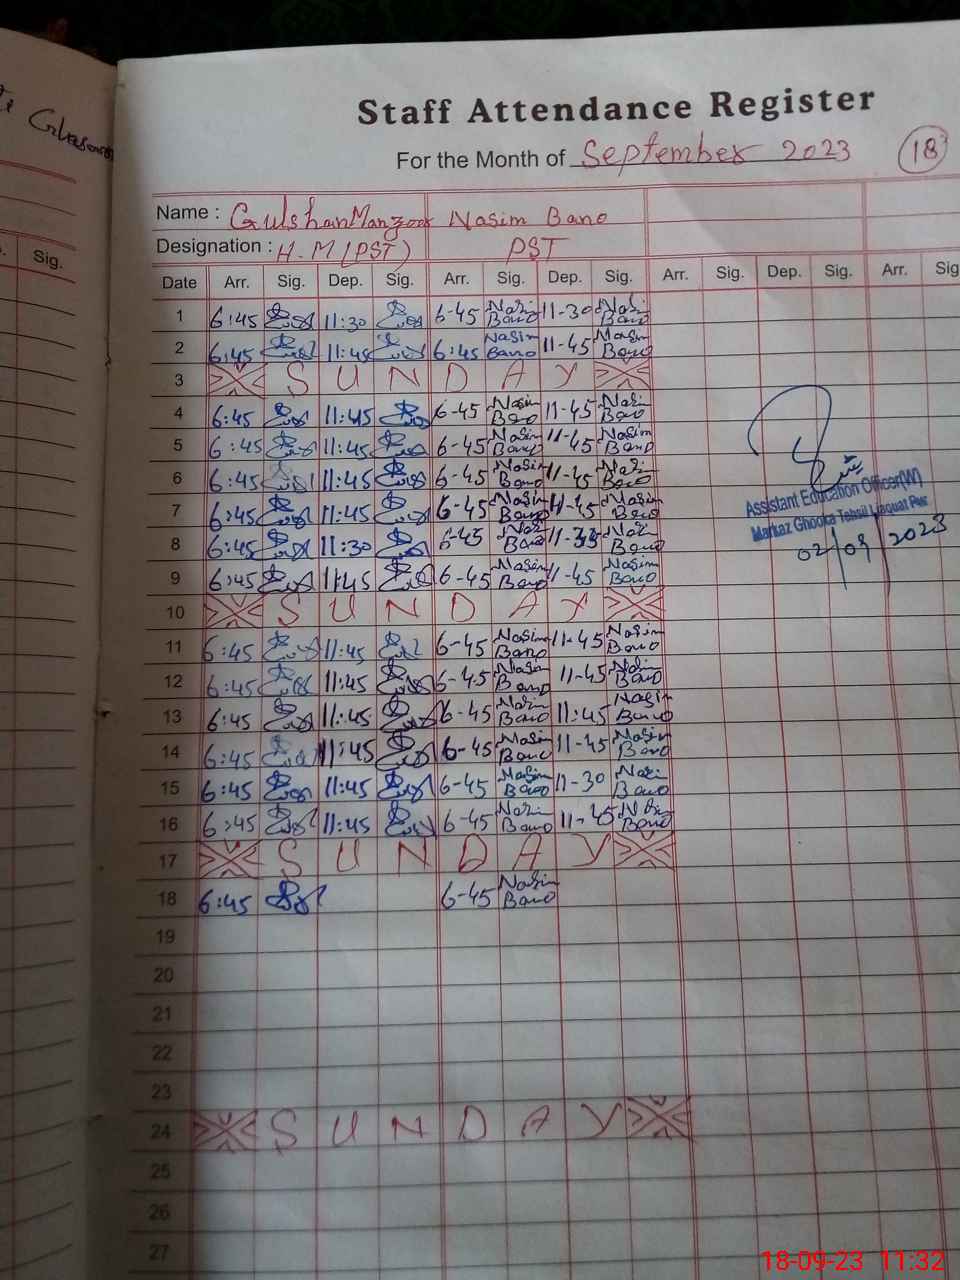 Sig.
Staff Attendance Register
For the Month of September 2023 18
Name : Gulshan Manzoor Nasim Bano
Designation : H.M (PST) PST
Date Arr. Sig. Dep. Sig. Arr. Sig. Dep. Sig. Arr. Sig. Dep. Sig. Arr. Sig
1 6:45 11:30 6-45 Nasim Bano 11-30 Nasim Bano
2 6:45 11:45 6:45 Nasim Bano 11-45 Nasim Bano
3 SUNDAY
4 6:45 11:45 6-45 Nasim Bano 11-45 Nasim Bano
5 6:45 11:45 6-45 Nasim Bano 11-45 Nasim Bano
6 6:45 11:45 6-45 Nasim Bano 11-45 Nasim Bano
7 6:45 11:45 6-45 Nasim Bano 11-45 Nasim Bano
8 6:45 11:30 6-45 Nasim Bano Nasim Bano
9 6:45 11:45 6-45 Nasim Bano 11-45 Nasim Bano
10 SUNDAY
11 6:45 11:45 6-45 Nasim Bano 11-45 Nasim Bano
12 6:45 11:45 6-45 Nasim Bano 11-45 Nasim Bano
13 6:45 11:45 6-45 Nasim Bano 11:45 Nasim Bano
14 6:45 11:45 6-45 Nasim Bano 11-45 Nasim Bano
15 6:45 11:45 6-45 Nasim Bano 11-30 Nasim Bano
16 6:45 11:45 6-45 Nasim Bano 11-45 Nasim Bano
17 SUNDAY
18 6:45 6-45 Nasim Bano
19
20
21
22
23
24 SUNDAY
25
26
27
Assistant Education Officer(W)
Markaz Ghooka Tehsil Liaquat Pur
02/09/2023
18-09-23 11:32